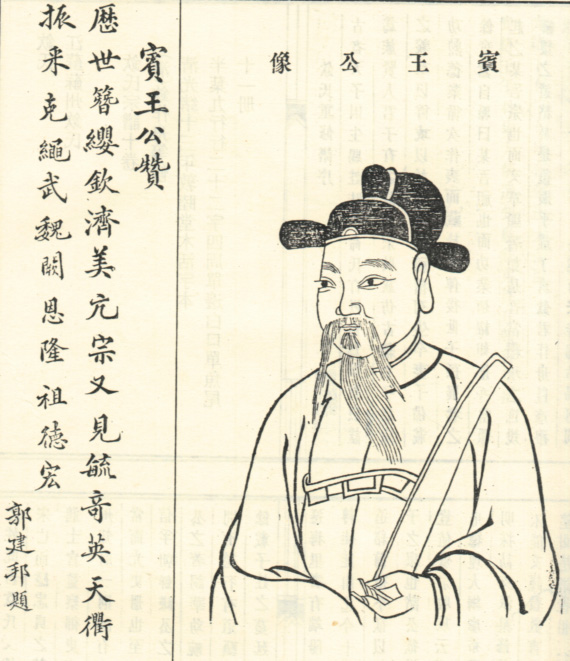 賓王公像
賓王公贊
歷世簪纓欽濟美亢宗又見毓奇英天衢
振采克繩武魏闕恩隆祖德宏
郭建邦題